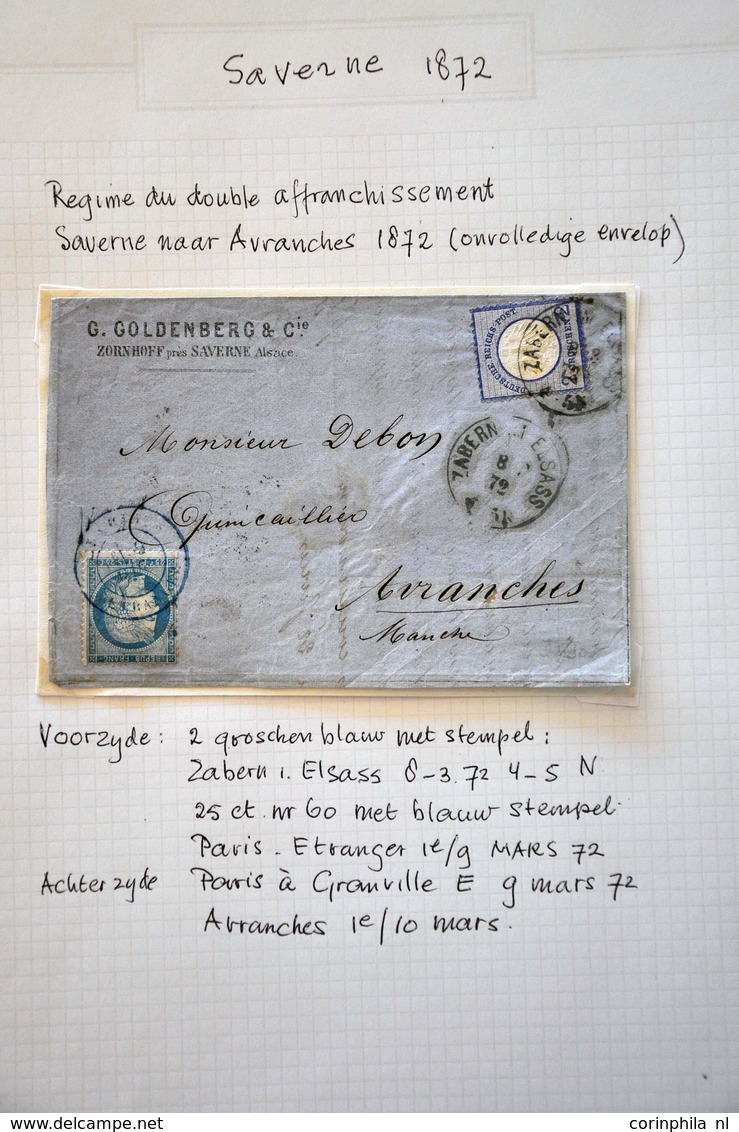 Saverne 1872
Regime du double affranchissement
Saverne naar Avranches 1872 (onvolledige envelop)
G. GOLDENBERG & Cie
ZORNHOFF près SAVERNE Alsace
DEUTSCHE REICHS-POST
2 GROSCHEN
ZABERN
Monsieur Debon
ZABERN I ELSASS
8
72
Quincaillier
Avranches
Manche
REPUB FRANC
Voorzyde: 2 groschen blauw met stempel:
Zabern i. Elsass 8-3.72 4-5 N
25 ct. nr 60 met blauw stempel
Paris - Etranger 1e/9 MARS 72
Achterzyde Paris à Granville E 9 mars 72
Avranches 1e/10 mars.
delcampe.net
corinphila nl